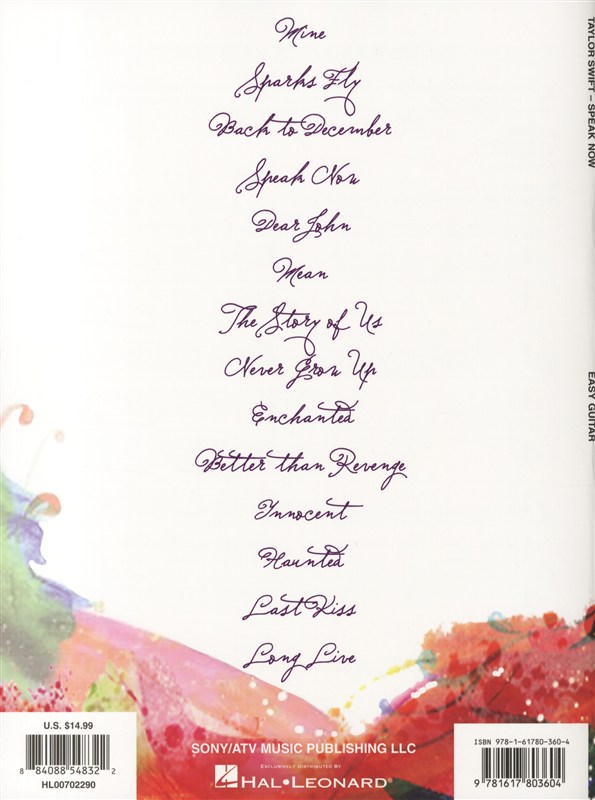 Mine
Sparks Fly
Back to December
Speak Now
Dear John
Mean
The Story of Us
Never Grow Up
Enchanted
Better than Revenge
Innocent
Haunted
Last Kiss
Long Live
TAYLOR SWIFT – SPEAK NOW
EASY GUITAR
U.S. $14.99
8 84088 54832 2
HL00702290
SONY/ATV MUSIC PUBLISHING LLC
EXCLUSIVELY DISTRIBUTED BY
HAL•LEONARD®
ISBN 978-1-61780-360-4
9 781617 803604